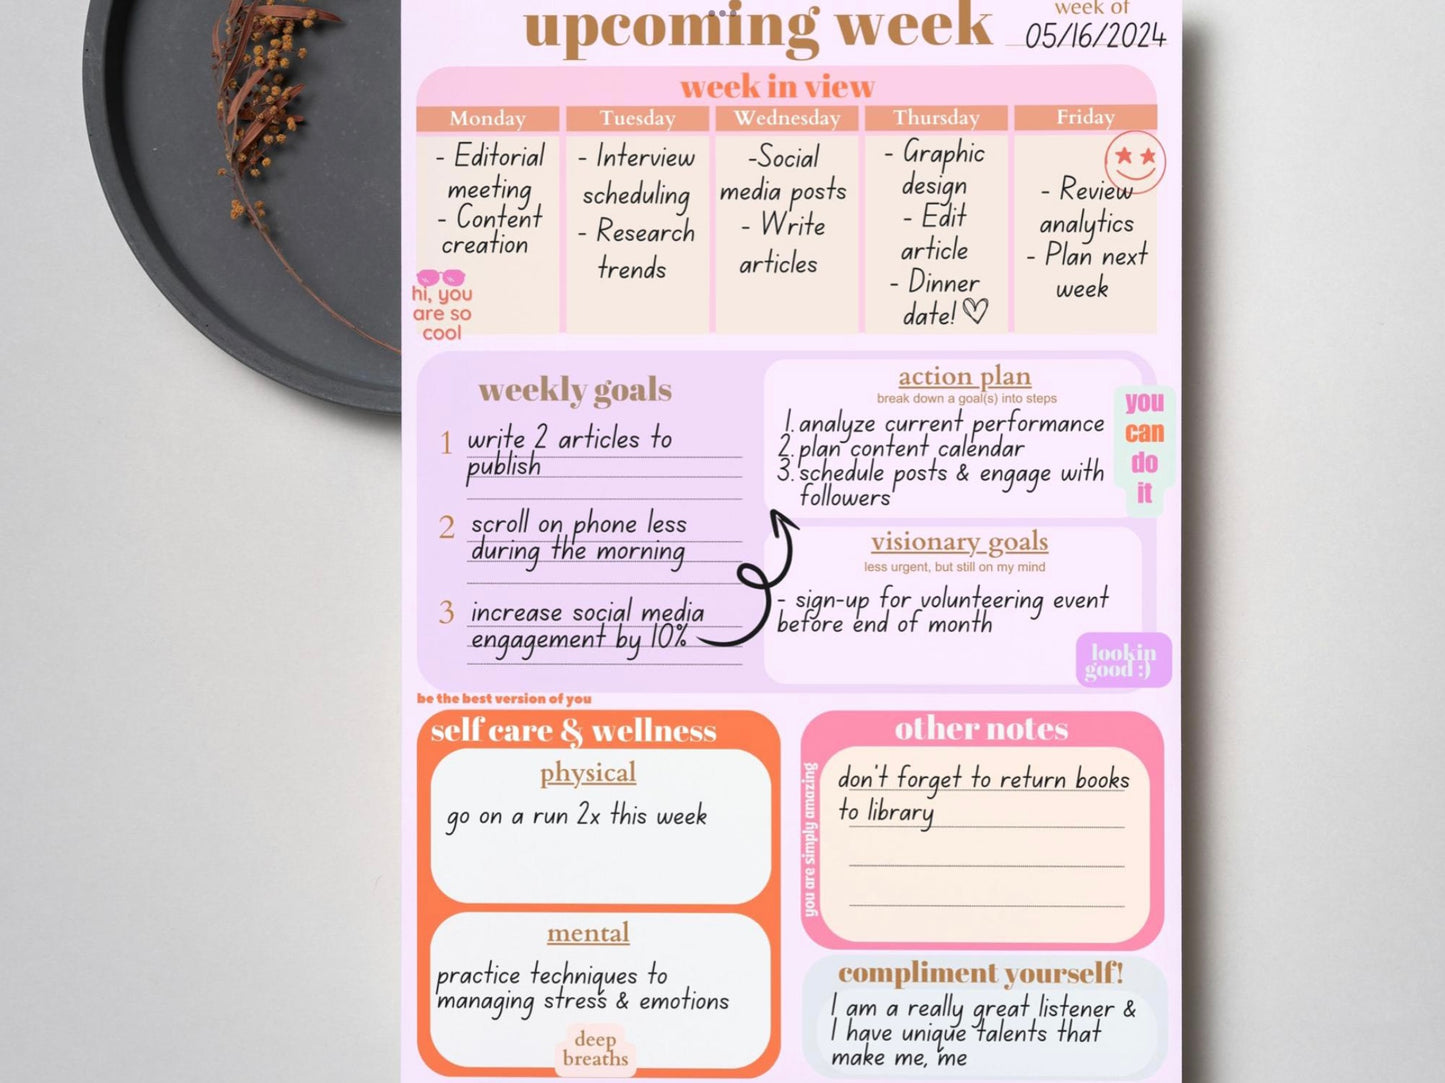 upcoming week
week of
05/16/2024
week in view
Monday
- Editorial
meeting
- Content
creation
hi, you
are so
cool
Tuesday
- Interview
scheduling
- Research
trends
Wednesday
-Social
media posts
- Write
articles
Thursday
- Graphic
design
- Edit
article
- Dinner
date!
Friday
- Review
analytics
- Plan next
week
weekly goals
1 write 2 articles to
publish
2 scroll on phone less
during the morning
3 increase social media
engagement by 10%
action plan
break down a goal(s) into steps
1. analyze current performance
2. plan content calendar
3. schedule posts & engage with
followers
you
can
do
it
visionary goals
less urgent, but still on my mind
- sign-up for volunteering event
before end of month
lookin
good :)
be the best version of you
self care & wellness
physical
go on a run 2x this week
mental
practice techniques to
managing stress & emotions
deep
breaths
other notes
you are simply amazing
don't forget to return books
to library
compliment yourself!
I am a really great listener &
I have unique talents that
make me, me